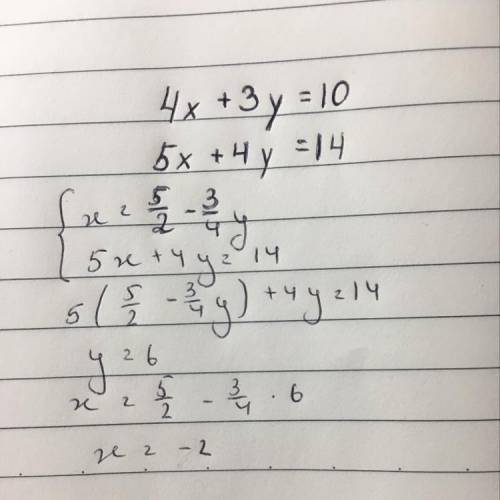 4x + 3y = 10
5x + 4y = 14
{ x = 5/2 - 3/4 y
5x + 4y = 14
5 ( 5/2 - 3/4 y ) + 4y = 14
y = 6
x = 5/2 - 3/4 · 6
x = -2